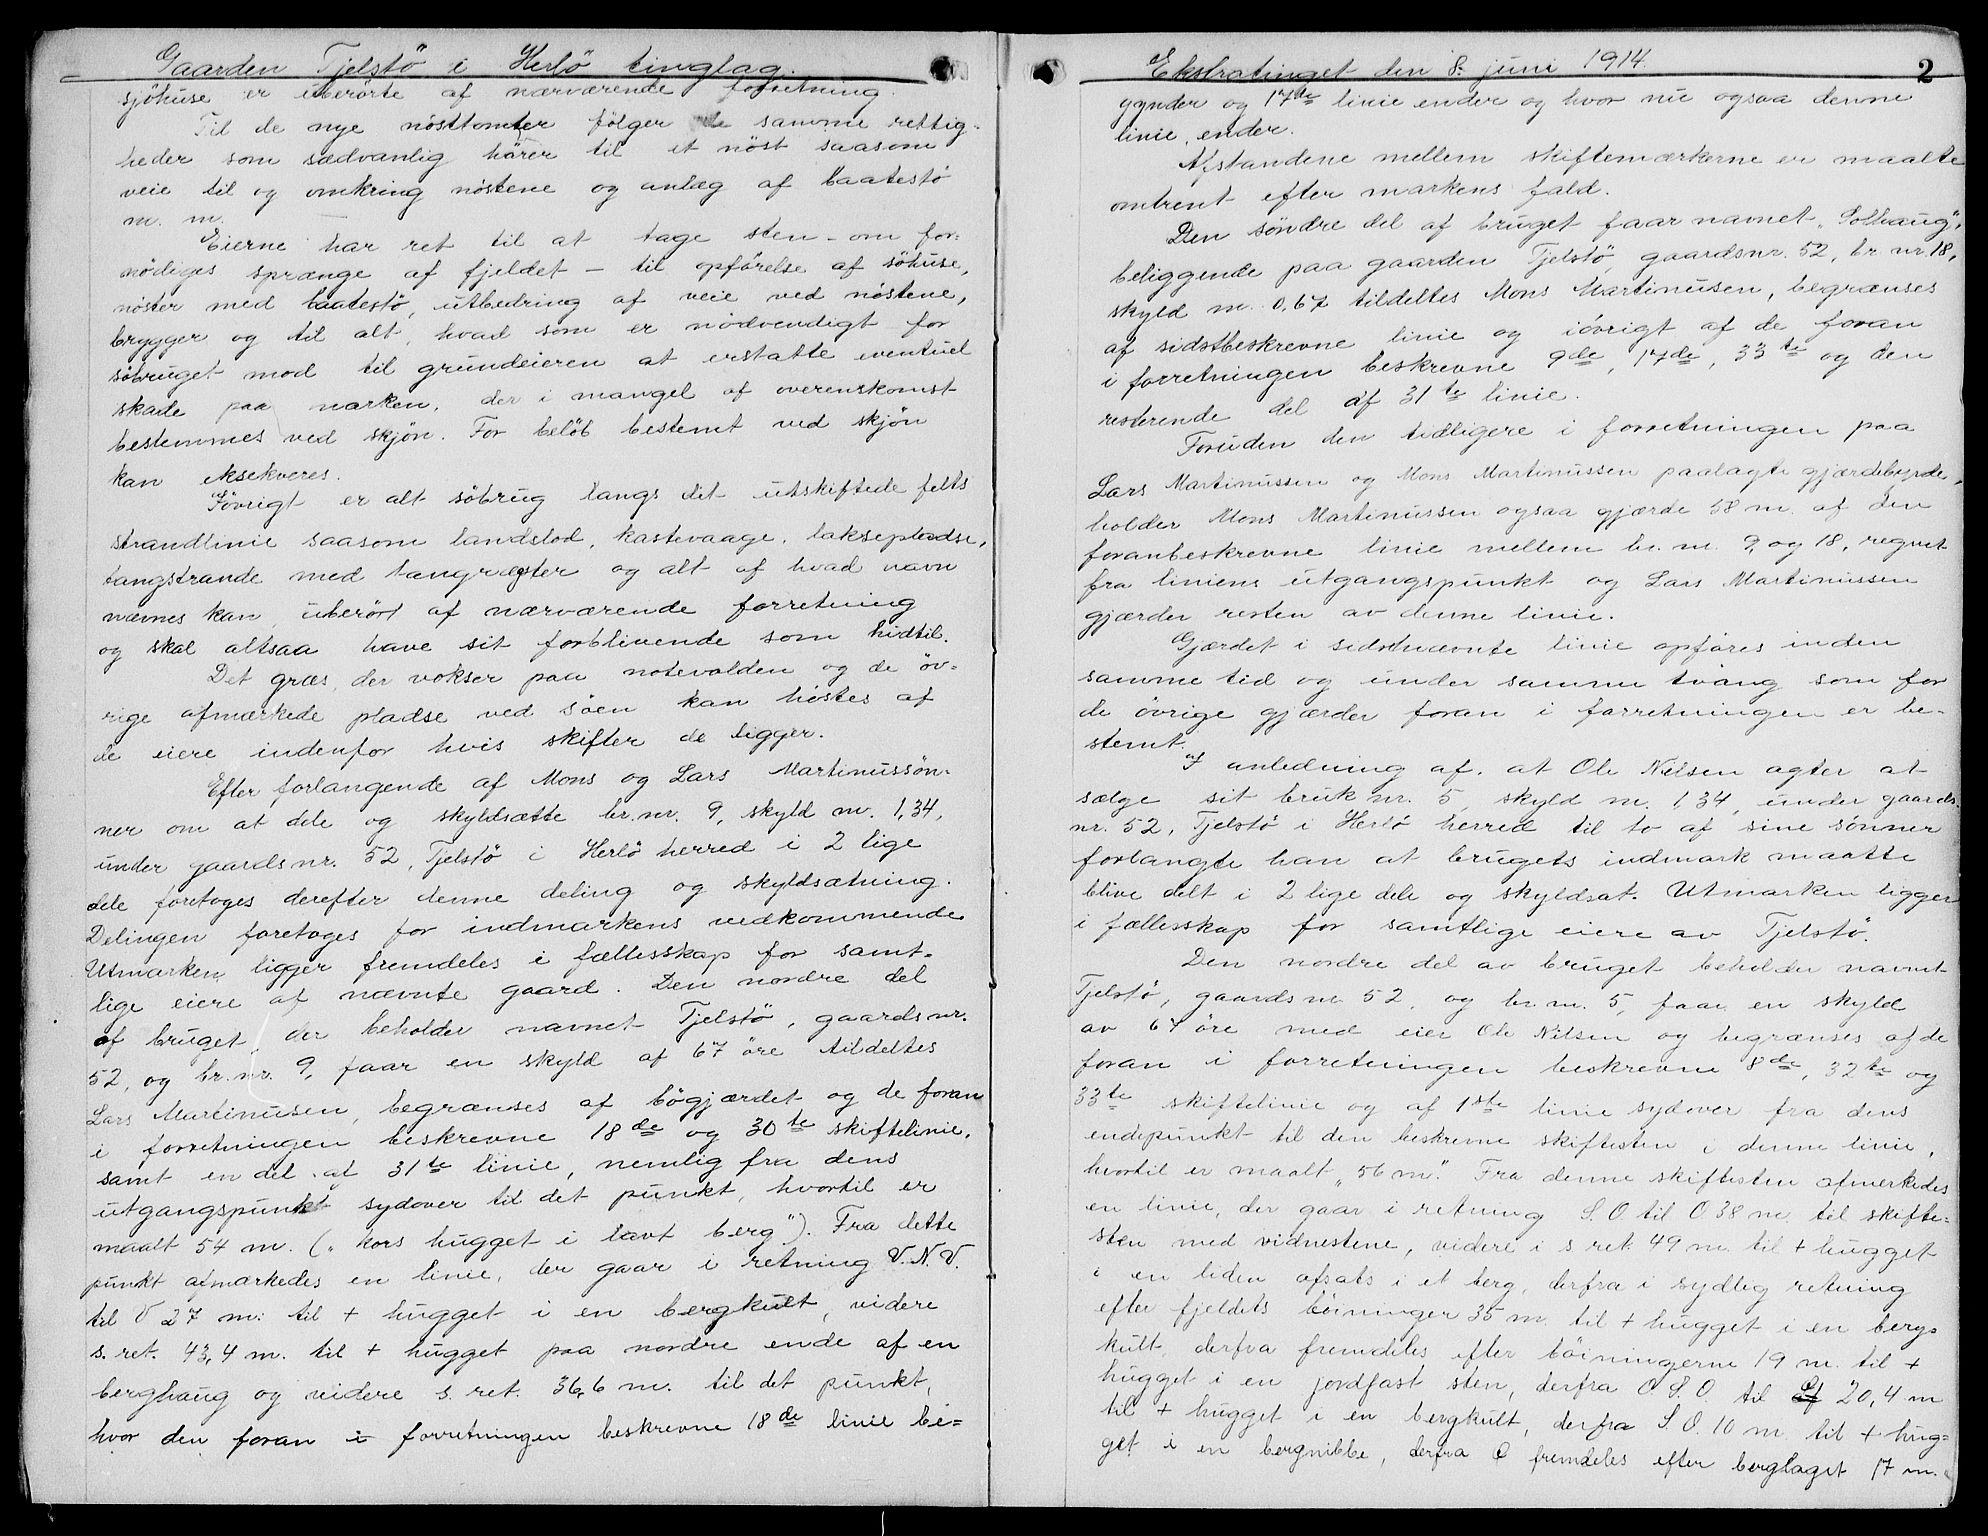 Gaarden Tjelstö i Herlö tinglag.
sjöhuse er uberörte af nærværende forretning.
Til de nye nösttomter fölger de samme rettig-
heder som sædvanlig hörer til et nöst saasom
veie til og omkring nöstene og anlæg af baatestö
m. m.
Eierne har ret til at tage sten - om for-
nödiges sprænge af fjeldet - til opförelse af söhuse,
nöster med baatestö, utbedring af veie ved nöstene,
brygger og til alt, hvad som er nödvendigt for
söbruget mod til grundeieren at erstatte eventuel
skade paa marken, der i mangel af overenskomst
bestemmes ved skjön. For belöb bestemt ved skjön
kan eksekveres.
Iövrigt er alt söbrug langs det utskiftede felts
strandlinie saasom landslod, kastevaage, laksepladse,
tangstrande med tangræster og alt af hvad navn
nævnes kan, uberört af nærværende forretning
og skal altsaa have sit forblivende som hidtil.
Det græs, der vokser paa notevolden og de öv-
rige afmærkede pladse ved söen kan höstes af
de eiere indenfor hvis skifter de ligger.
Efter forlangende af Mons og Lars Martinussön-
ner om at dele og skyldsætte br. nr. 9, skyld m. 1,34,
under gaards nr. 52, Tjelstö i Herlö herred i 2 lige
dele foretoges derefter denne deling og skyldsætning.
Delingen foretoges for indmarkens vedkommende
Utmarken ligger fremdeles i fællesskap for samt-
lige eiere af nævnte gaard. Den nordre del
af bruget, der beholder navnet Tjelstö, gaards nr.
52, og br. nr. 9, faar en skyld af 67 öre tildeltes
Lars Martinusen, begrænses af bögjærdet og de foran
i forretningen beskrevne 18de og 30te skiftelinie,
samt en del af 31te linie, nemlig fra dens
utgangspunkt sydover til det punkt, hvortil er
maalt 54 m. („kors hugget i lavt berg"). Fra dette
punkt afmærkedes en linie, der gaar i retning V.N.V.
til V 27 m. til + hugget i en bergkult, videre
s. ret. 43,4 m. til + hugget paa nordre ende af en
berghaug og videre s. ret. 36,6 m. til det punkt,
hvor den foran i forretningen beskrevne 18de linie be-
Ekstratinget den 8. juni 1914.
2
gynder og 17de linie ender og hvor nu ogsaa denne
linie ender.
Afstandene mellem skiftemærkerne er maalte
omtrent efter markens fald.
Den söndre del af bruget faar navnet „Solhaug",
beliggende paa gaarden Tjelstö, gaardsnr. 52, br. nr. 18,
skyld m. 0,67 tildeltes Mons Martinusen, begrænses
af sidstbeskrevne linie og iövrigt af de foran
i forretningen beskrevne 9de, 17de, 33te og den
resterende del af 31te linie.
Foruden den tidligere i forretningen paa
Lars Martinussen og Mons Martinussen paalagte gjærdebyrde,
holder Mons Martinussen ogsaa gjærde 58 m. af den
foranbeskrevne linie mellem br. nr. 9 og 18, regnet
fra liniens utgangspunkt og Lars Martinussen
gjærder resten av denne linie.
Gjærdet i sidstnævnte linie opföres inden
samme tid og under samme tvang som for
de övrige gjærder foran i forretningen er be-
stemt.
I anledning af, at Ole Nilsen agter at
sælge sit bruk nr. 5, skyld m. 1,34, under gaards
nr. 52, Tjelstö i Herlö herred til to af sine sönner
forlangte han at brugets indmark maatte
blive delt i 2 lige dele og skyldsat. Utmarken ligger
i fællesskap for samtlige eiere av Tjelstö.
Den nordre del av bruget beholder navnet
Tjelstö, gaards nr. 52, og br. nr. 5, faar en skyld
av 67 öre med eier Ole Nilsen og begrænses af de
foran i forretningen beskrevne 8de, 32te og
33te skiftelinie og af 1ste linie sydover fra dens
endepunkt til den beskrevne skiftesten i denne linie,
hvortil er maalt „56 m." Fra denne skiftesten afmerkedes
en linie, der gaar i retning S.O til O. 38 m. til skifte-
sten med vidnestene, videre i s ret. 49 m. til + hugget
i en liden afsats i et berg, derfra i sydlig retning
efter fjeldets böininger 35 m. til + hugget i en berg-
kult, derfra fremdeles efter böiningerne 19 m. til +
hugget i en jordfast sten, derfra O S. O. til S 20,4 m
til + hugget i en bergkult, derfra S. O. 10 m. til + hug-
get i en bergnibbe, derfra O fremdeles efter berglaget 17 m.